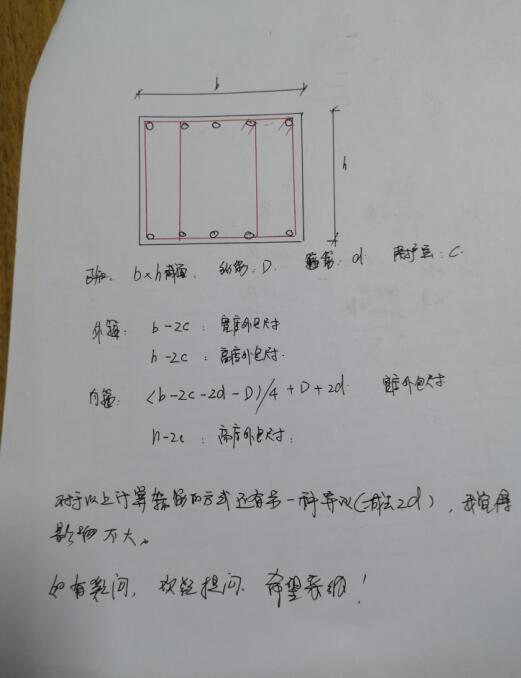 b
h
已知: b×h 截面. 纵筋: D. 箍筋: d. 保护层: C.
外箍: b-2c : 宽度外包尺寸
h-2c : 高度外包尺寸.
内箍: (b-2c-2d-D)/4 + D + 2d. 宽度外包尺寸
h-2c : 高度外包尺寸:
对于以上计算箍筋的方式还有另一种争议(减去2d), 我觉得
影响不大。
如有疑问, 欢迎提问. 希望采纳!